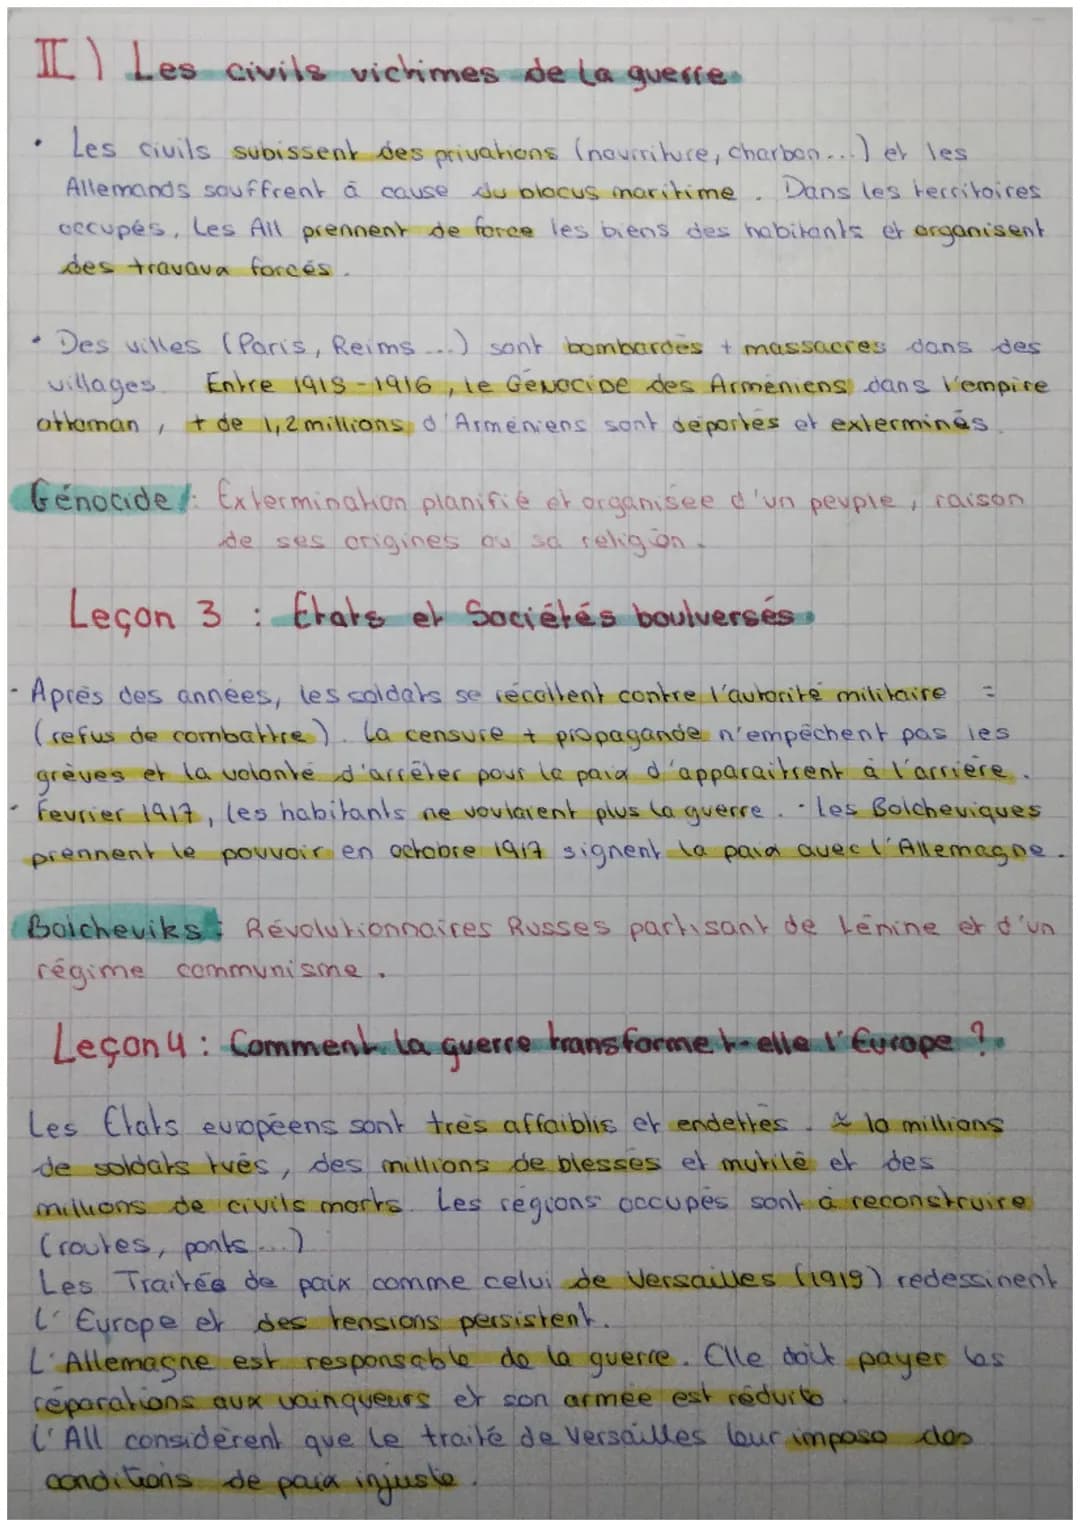 II) Les civils victimes de la guerre
• Les civils subissent des privations (nourriture, charbon...) et les
Allemands souffrent à cause du blocus maritime. Dans les territoires
occupés, les All prennent de force les biens des habitants et organisent
des travaux forcés.
• Des villes (Paris, Reims...) sont bombardés + massacres dans des
villages. Entre 1915-1916, le GENOCIDE des Arméniens dans l'empire
ottoman, + de 1,2 millions d'Arméniens sont déportés et exterminés.
Génocide : Extermination planifié et organisée d'un peuple, raison
de ses origines ou sa religion.
Leçon 3 : Etats et Sociétés boulversés
- Après des années, les soldats se récoltent contre l'autorité militaire =
(refus de combattre). La censure + propagande n'empêchent pas les
grèves et la volonté d'arrêter pour la paix d'apparaitrent à l'arrière.
• Fevrier 1917, les habitants ne voulaient plus la guerre. • Les Bolcheviques
prennent le pouvoir en octobre 1917 signent la paix avec l'Allemagne.
Bolcheviks : Révolutionnaires Russes partisant de Lénine et d'un
régime communisme.
Leçon 4 : Comment la guerre transforme t-elle l'Europe ?
Les Etats européens sont très affaiblis et endettés. ≈ 10 millions
de soldats tués, des millions de blessés et mutilé et des
millions de civils morts. Les régions occupés sont à reconstruire
(routes, ponts...)
Les Traités de paix comme celui de Versailles (1919) redessinent
l'Europe et des tensions persistent.
L'Allemagne est responsable de la guerre. Elle doit payer les
réparations aux vainqueurs et son armée est réduite.
L'All considèrent que le traité de Versailles leur impose des
conditions de paix injuste.